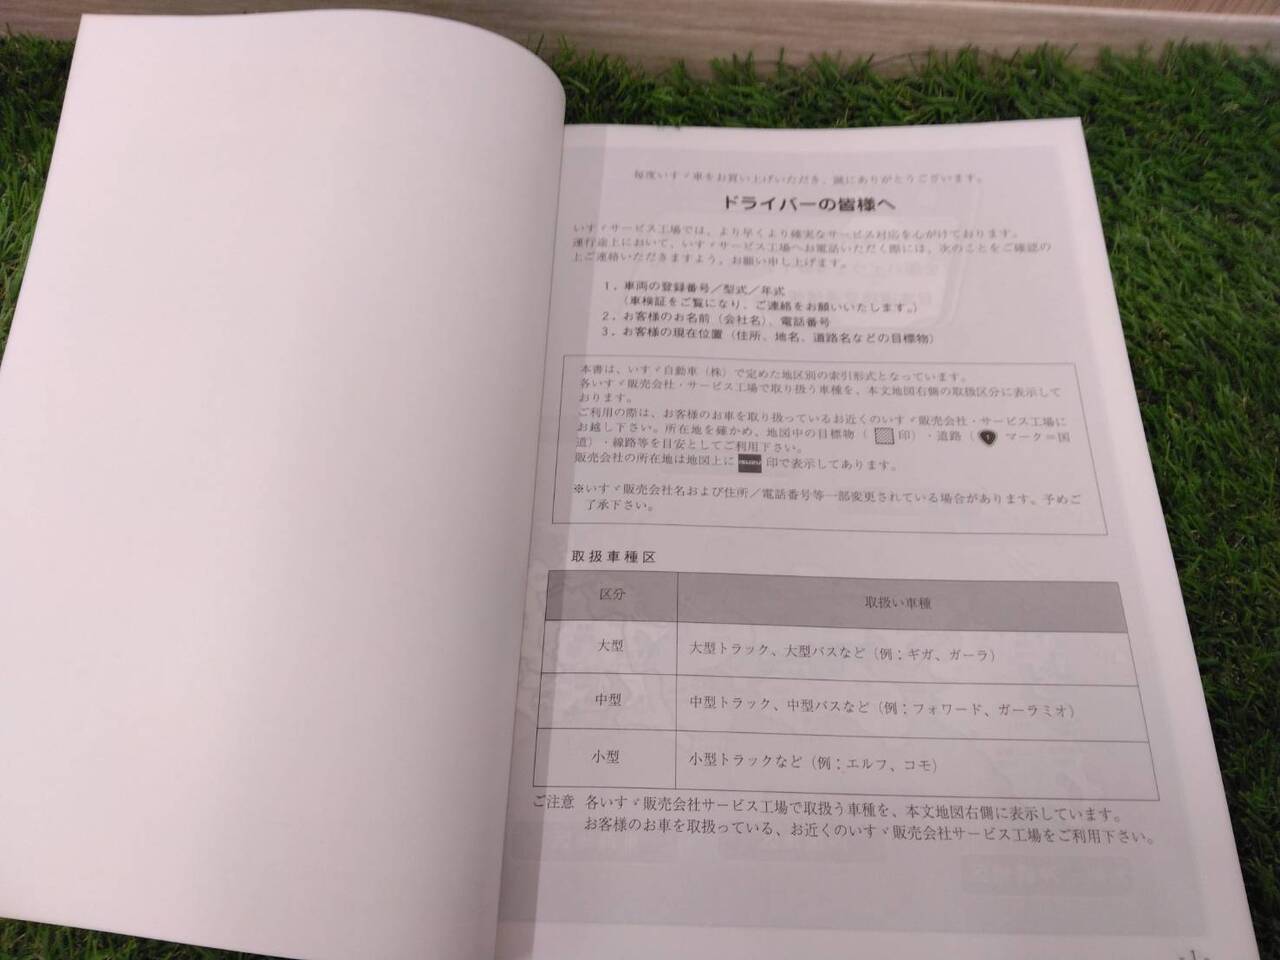 毎度いすゞ車をお買い上げいただき、誠にありがとうございます。
ドライバーの皆様へ
いすゞサービス工場では、より早くより確実なサービス対応を心がけております。
運行途上において、いすゞサービス工場へお電話いただく際には、次のことをご確認の
上ご連絡いただきますよう、お願い申し上げます。
1．車両の登録番号／型式／年式
（車検証をご覧になり、ご連絡をお願いいたします。）
2．お客様のお名前（会社名）、電話番号
3．お客様の現在位置（住所、地名、道路名などの目標物）
本書は、いすゞ自動車（株）で定めた地区別の索引形式となっています。
各いすゞ販売会社・サービス工場で取り扱う車種を、本文地図右側の取扱区分に表示して
おります。
ご利用の際は、お客様のお車を取り扱っているお近くのいすゞ販売会社・サービス工場に
お越し下さい。所在地を確かめ、地図中の目標物（ 印）・道路（ 1 マーク＝国
道）・線路等を目安としてご利用下さい。
販売会社の所在地は地図上に ISUZU 印で表示してあります。
※いすゞ販売会社名および住所／電話番号等一部変更されている場合があります。予めご
了承下さい。
取扱車種区
区分 取扱い車種
大型 大型トラック、大型バスなど（例：ギガ、ガーラ）
中型 中型トラック、中型バスなど（例：フォワード、ガーラミオ）
小型 小型トラックなど（例：エルフ、コモ）
ご注意 各いすゞ販売会社サービス工場で取扱う車種を、本文地図右側に表示しています。
お客様のお車を取扱っている、お近くのいすゞ販売会社サービス工場をご利用下さい。
- 1 -